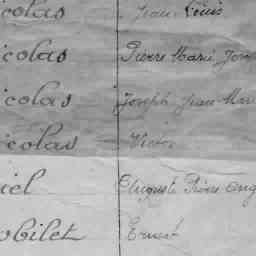 icolas Jean Louis
icolas Pierre Marie Jose
icolas Joseph Jean Mari
icolas Victor
iel Auguste Pierre Ang
obilet Ernest